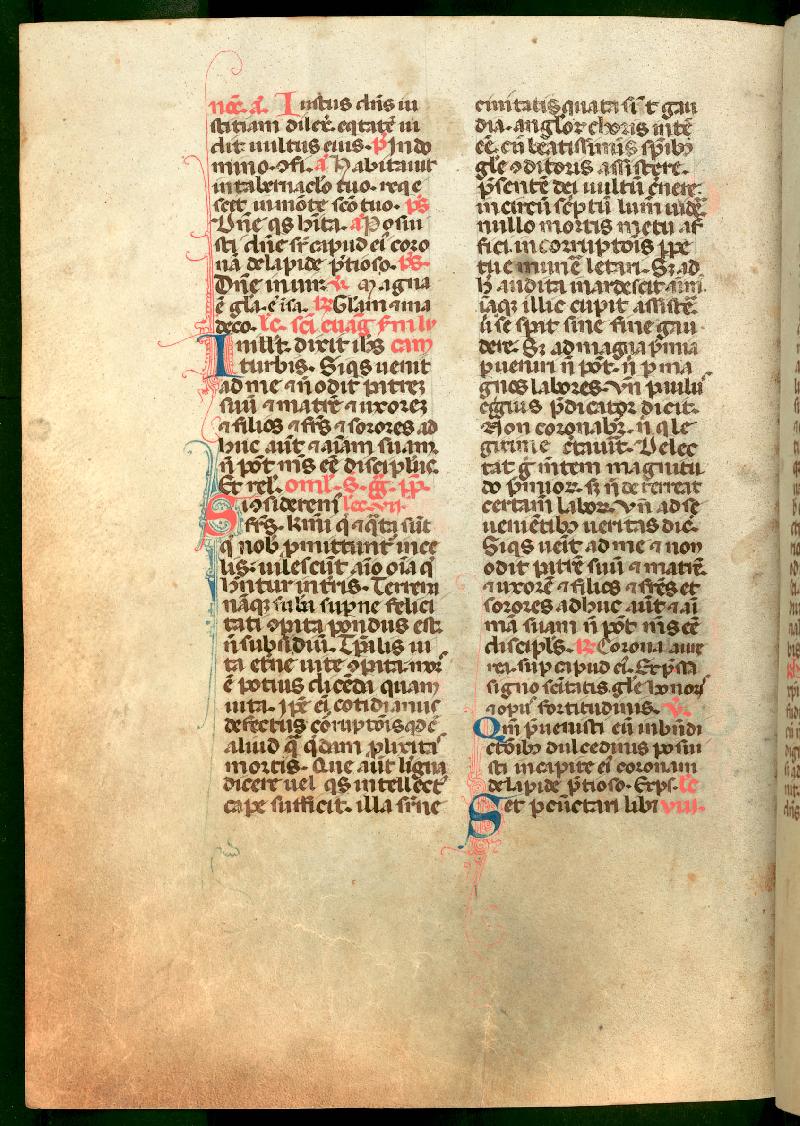 noc̄. a̅. Iustus dn̄s iu
stitiam dilex̄. eqtatē ui
dit uultus eius. p̄ Indo
mino ꝯfi. a̅ Habitauit
intabernaclo tuo. reqe
scet īmōte scō tuo. ps̄
Dn̄e qs hīta. a̅ Posui
sti dn̄e sr̄ capud eī coro
nā delapide p̄tioso. ps̄.
Dn̄e inuir. v̄. Magna
ē gl̄a eīsa. ꝶ Gl̄am ⁊ma
deco. lc̄. scī euāg
In ill̄t. dixit ih̄s
turbis. Siqs uenit
ad me ⁊ n̄ odit patrez
suū ⁊ matrē ⁊ uxorez
⁊ filios ⁊ fr̄s ⁊ sorores ad
huc aūt ⁊ aīam suam.
n̄ pōt m̄s ēē discipl̄us.
Et rel. oml̄. S. gg̅. pp̅.
Si ꝯsiderem̄ lec. vii.
fr̄s. kmī q̄ ⁊ q̄ta sūt
q̄ nob̄ p̄mittunt̄ īnce
lis. uilescūt aīo oīa q̄
hn̄tur intr̄is. Terrena
nāqꝫ sub̄a sup̄ne felici
tati ꝯp̄ita pondus est.
n̄ subsidiū. Tp̄alis ui
ta et̄ne uite ꝯp̄ita mor̄
ē potius dicēda quam
uita. Ip̄e eī cotidianus
defectus corruptōis qd̄ ē
aliud q̄ q̄dam p̄lixitas
mortis. Que aūt ligua
dicere uel qs intellectꝰ
cape sufficit. illa sr̄ne
ciuitatis quāta sīt gau
dia. angl̄oꝝ choris inte
ēē. cū beatissimis sp̄ibꝫ
gl̄e ꝯditoris assistere.
p̄sentē dei uultū c̄nere.
incircū sc̄ptū lum̄ uide.
nullo mortis metu af
fici. incorruptōis ppe
tue munē letari. Sꝫ ad
h̄ audita inardescit anim̄
iāqꝫ illic cupit assistē.
ū se sp̄at sine fine gau
dere. Sꝫ ad magna p̄mia
pueniri n̄ pōt. n̄ p ma
gnos labores. Vn̄ paulꝰ
egius p̄dicator dicit.
Non coronabr̄. n̄ q le
gitime c̄tauīt. Delec
tat g̅ m̄tem magnitu
do p̄mioꝝ. sꝫ n̄ deterreat
certam̄ laboꝝ. Vn̄ ad se
ueniētibꝫ ueritas dic̄.
Siqs ueīt ad me ⁊ non
odit patrē suū ⁊ matrē.
⁊ uxorē ⁊ filios ⁊ fr̄es et
sorores adhuc aūt ⁊ aī
mā suam n̄ pōt m̄s ēē
discipl̄s. ꝶ Corona aure
rea. sup capud eī. Exp̄ssa
signo sc̄itatis. gl̄e honoris
⁊ opꝰ fortitudinis. v̄.
Qm̄ p̄uenisti eū inbn̄di
ctōibꝫ dulcedinis posui
sti incapite eī coronam
delapide p̄tioso. Exps. lc̄
Set pc̄unctari libꝫ viii.